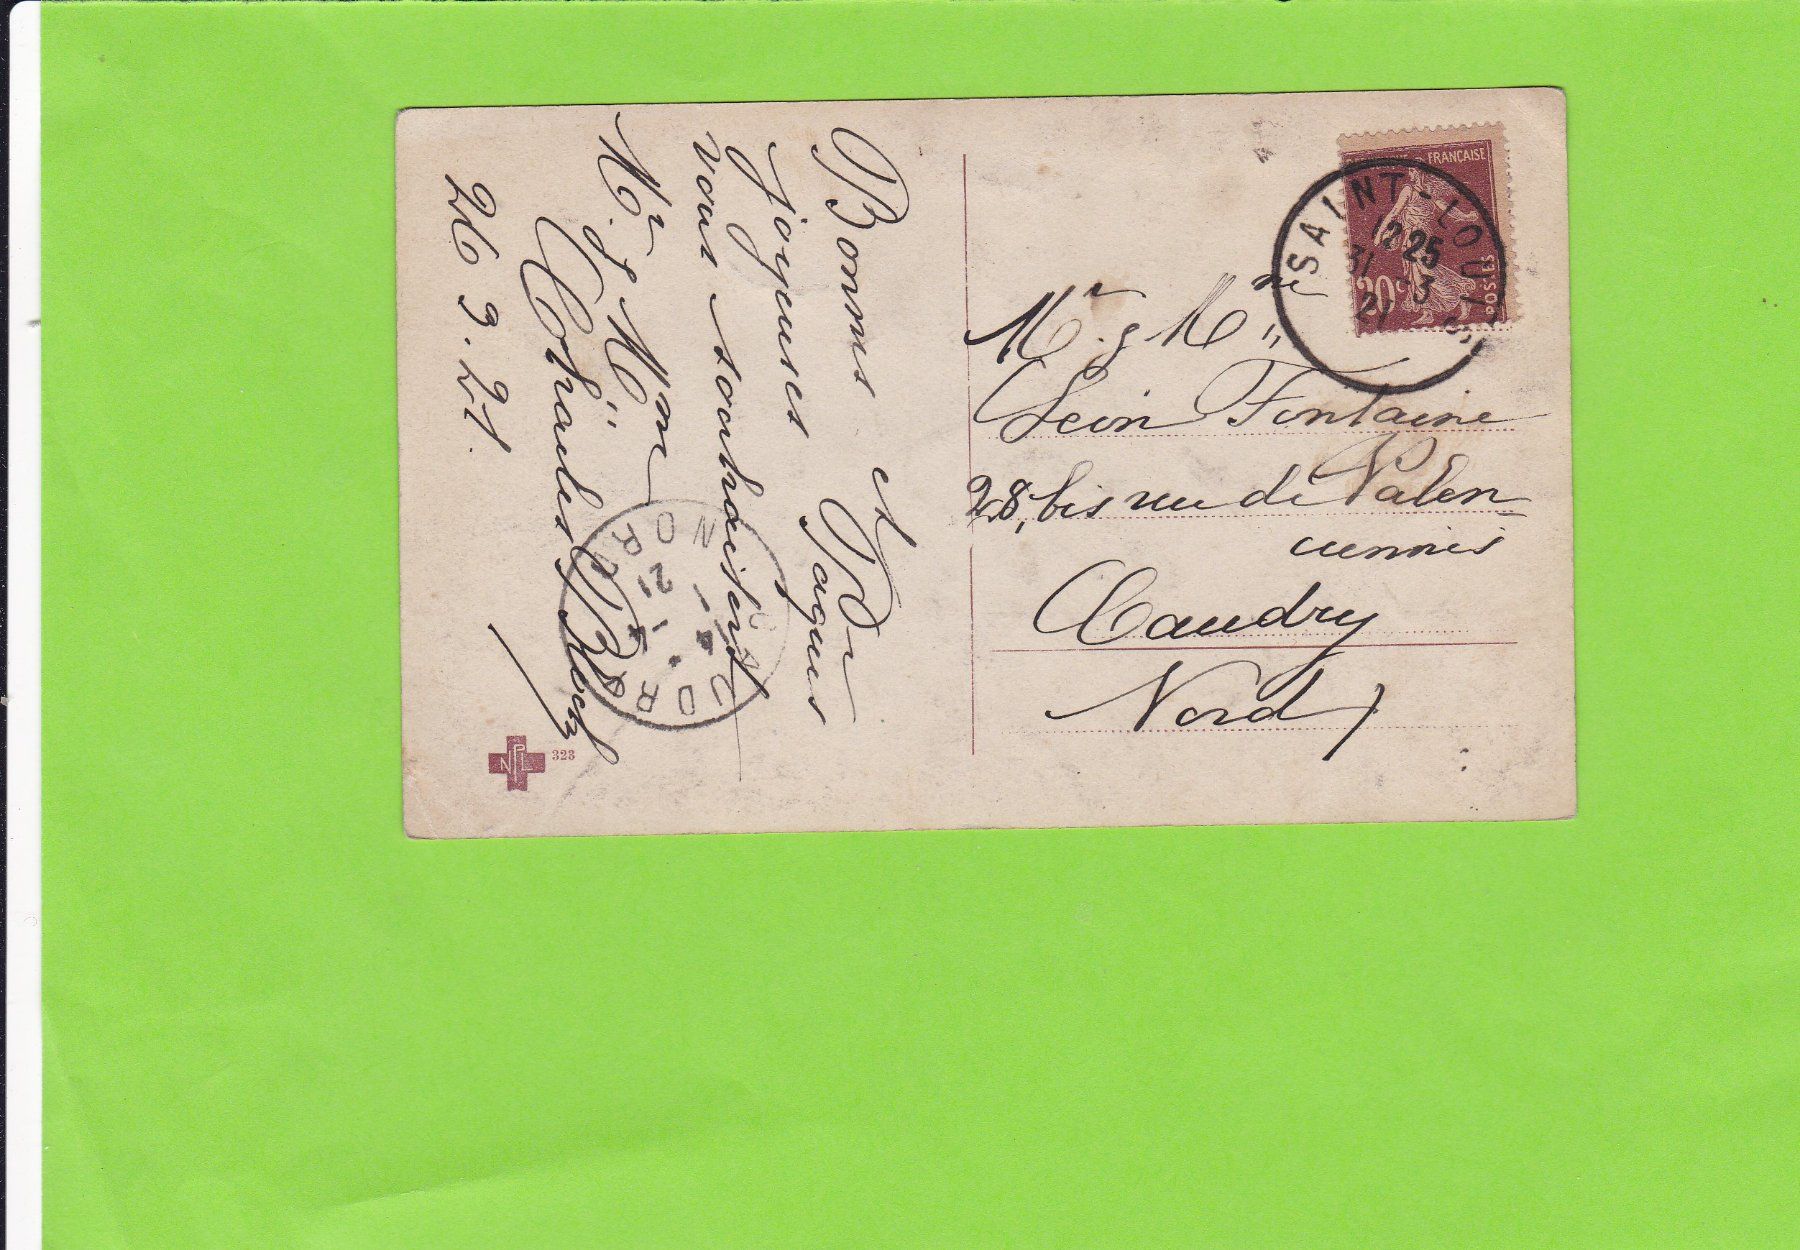 Bonnes et
joyeuses Pâques
vous souhaitent
Mr. & Mme
Charles Bloch
26 3. 21.
Mr. & Mme
Léon Fontaine
28, bis rue de Valen-
ciennes
Caudry
Nord
FRANÇAISE
POSTES
20c
SAINT-LOUIS
12 25
31 3
21
CAUDRY
NORD
1 - 4
21
NPL
323